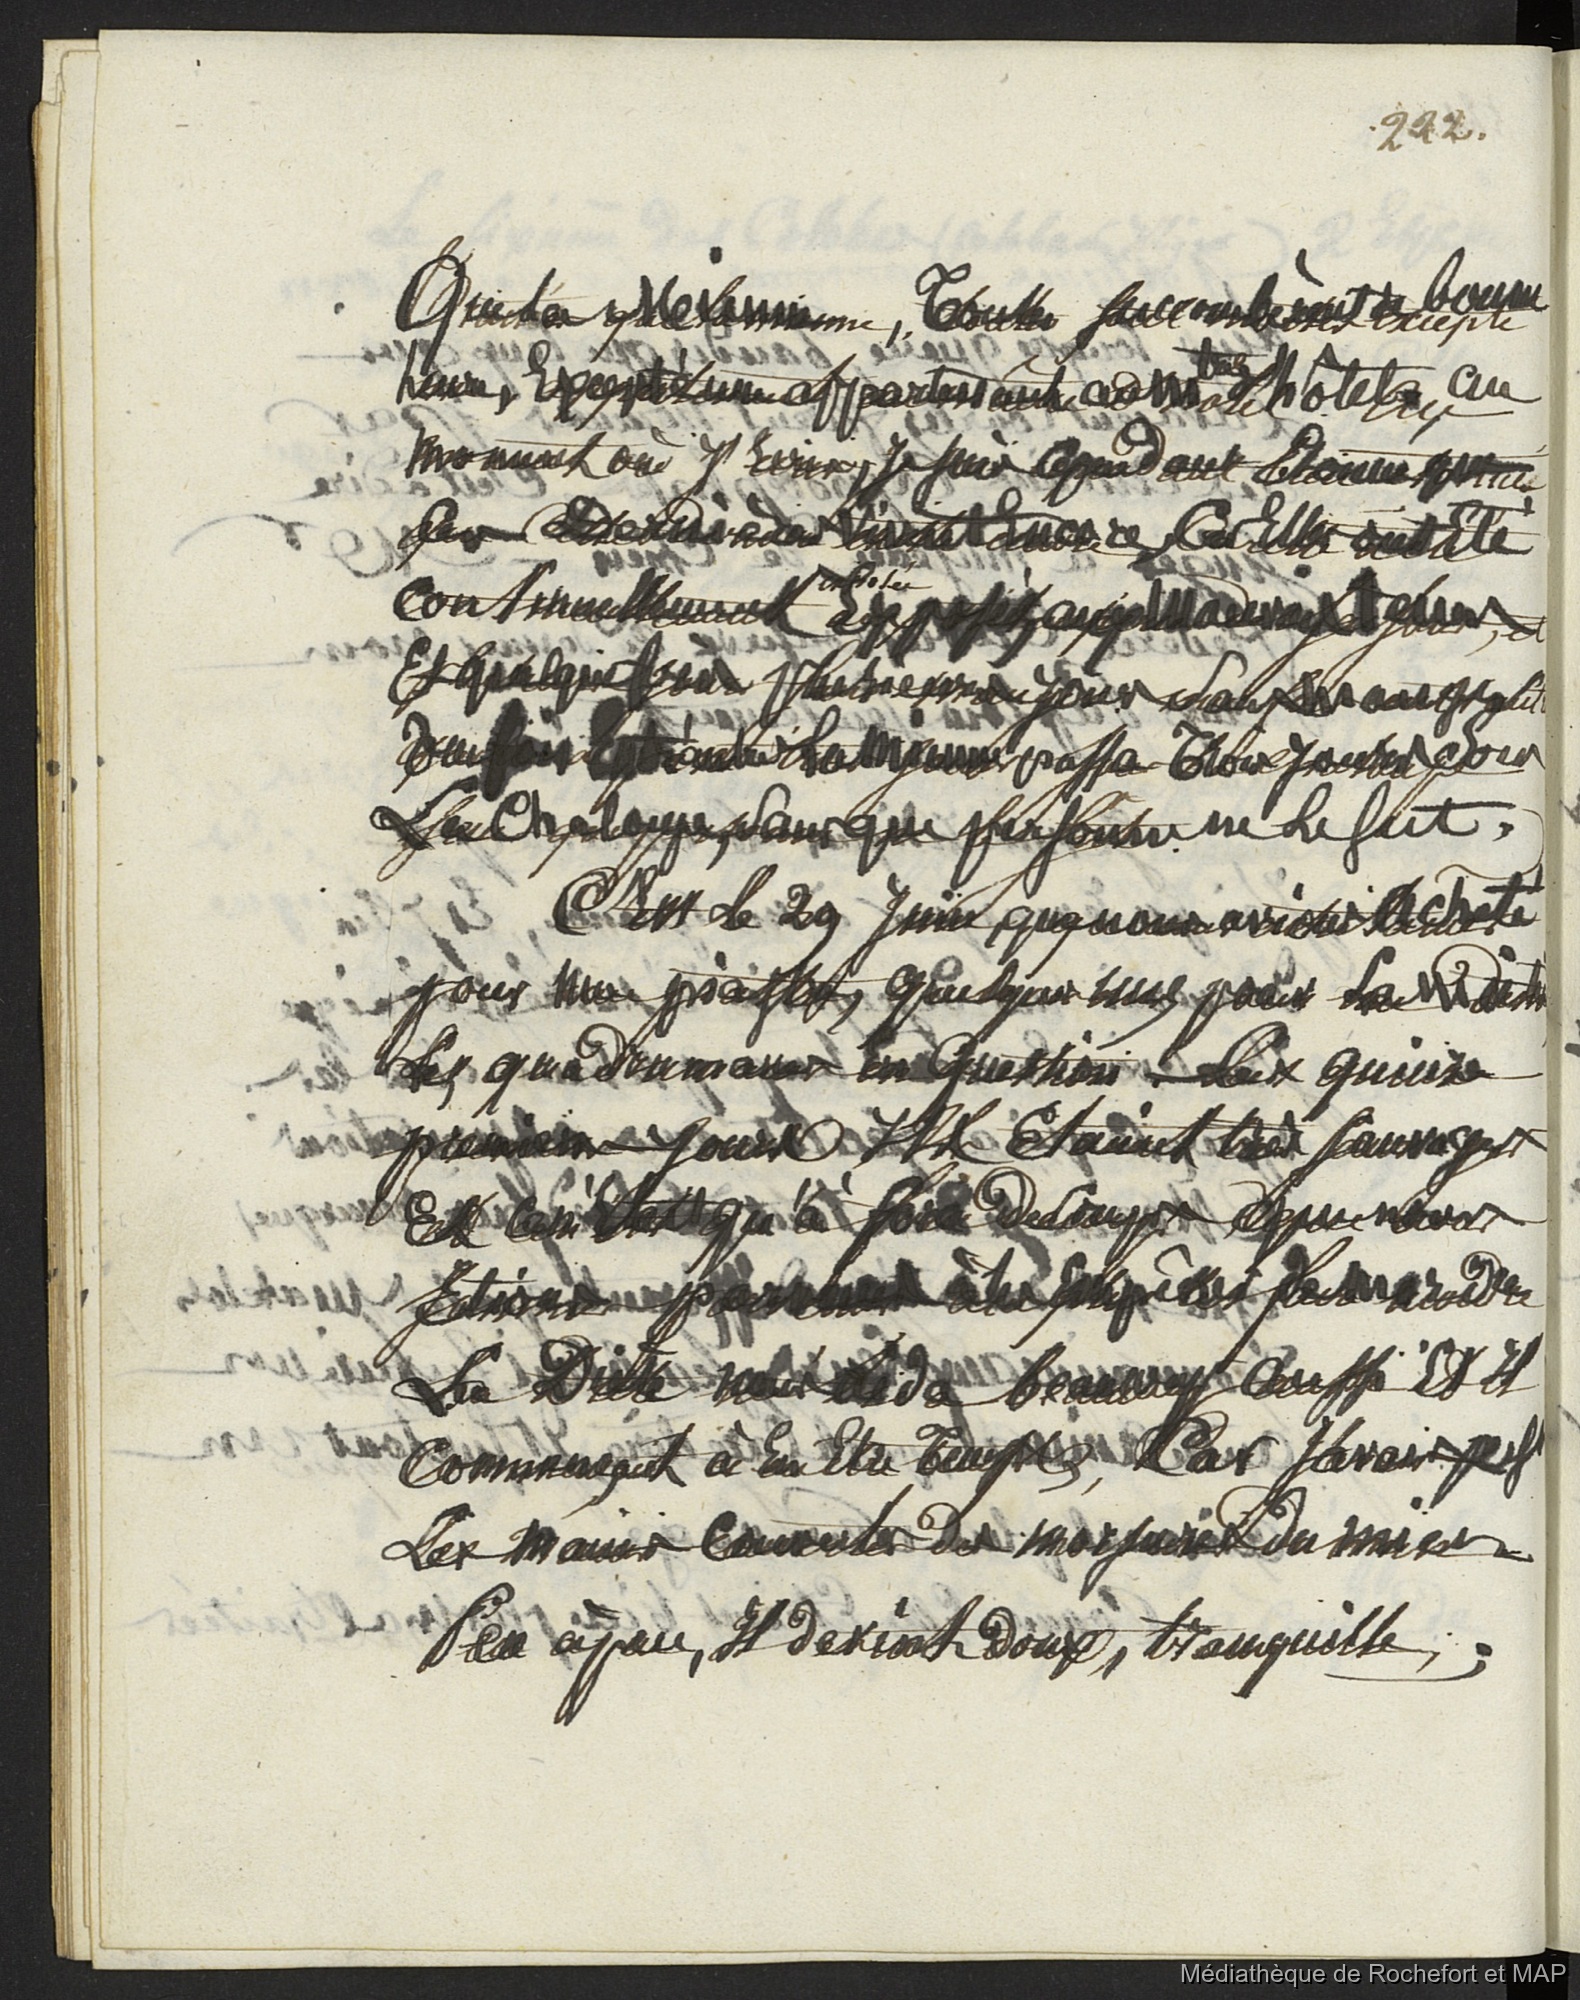 222.
Quinta Meloum, Toutes succombèrent de bonne
heure, Excepté une appartenant à notre hôtel, au
moment où J'Ecris, Je suis cependant Etonné que
les dernières vivent Encore, Car Elles ont Eté
continuellement Exposées aux mauvais temps, et
Et quelquefois plusieurs jours sans manger
La mienne passa Trois jours sous
La Chaloupe, sans que personne ne le sut.
C'Est le 29 Juin que nous avions Acheté
pour une piastre, quelques uns pour la moitié
Les quadrumanes en question. Les quinze
premiers jours Ils Etaient très sauvages
Et ce n'Est qu'à force de coups que nous
Etions parvenus à les empêcher de mordre
La Diète nous aida beaucoup aussi Et Il
Commençait à En Etre Temps, Car J'avais
Les mains couvertes des morsures du mien
Peu à peu, Il devint doux, tranquille,;
Médiathèque de Rochefort et MAP